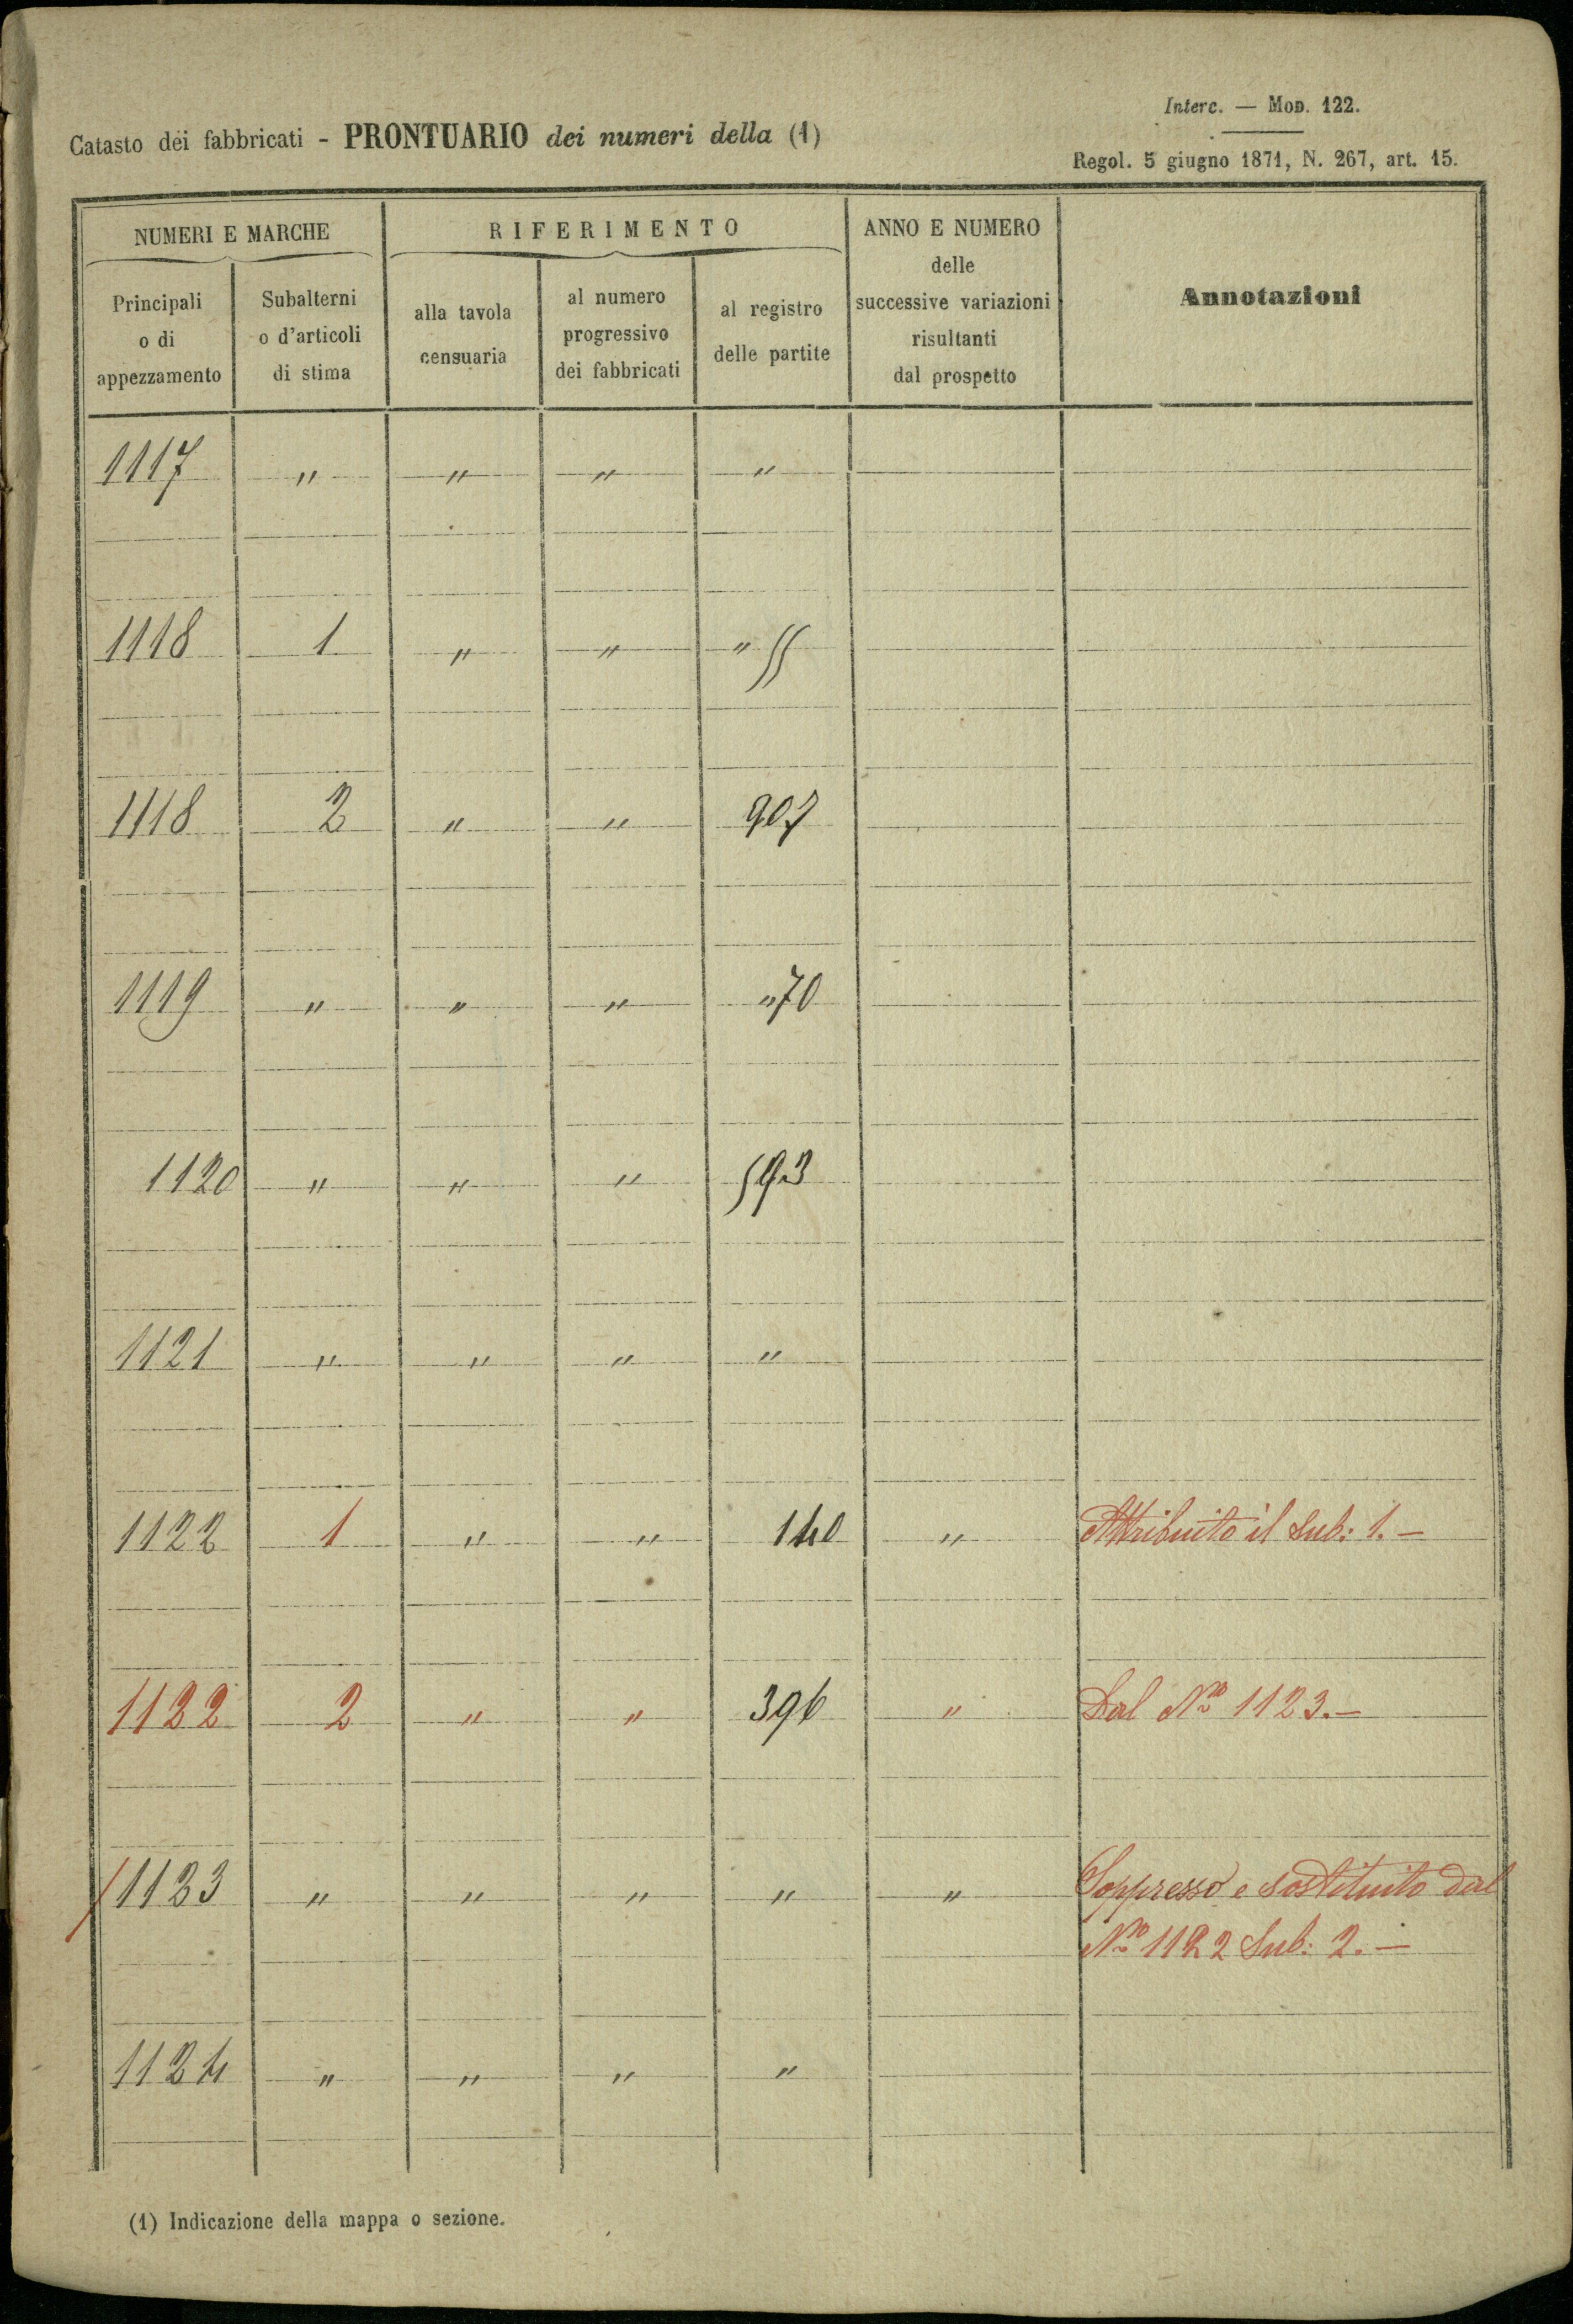 Interc. — MOD. 122.
Catasto dei fabbricati - PRONTUARIO dei numeri della (1)
Regol. 5 giugno 1871, N. 267, art. 15.
NUMERI E MARCHE
RIFERIMENTO
ANNO E NUMERO
delle
successive variazioni
risultanti
dal prospetto
Annotazioni
Principali
o di
appezzamento
Subalterni
o d'articoli
di stima
alla tavola
censuaria
al numero
progressivo
dei fabbricati
al registro
delle partite
1117 " " " "
1118 1 " " " 55
1118 2 " " 907
1119 " " " " 70
1120 " " " 593
1121 " " " "
1122 1 " " 140 " Attribuito il Sub: 1. —
1122 2 " " 396 " Dal No 1123. —
1123 " " " " " Soppresso e sostituito dal
No 1122 Sub: 2. —
1124 " " " "
(1) Indicazione della mappa o sezione.